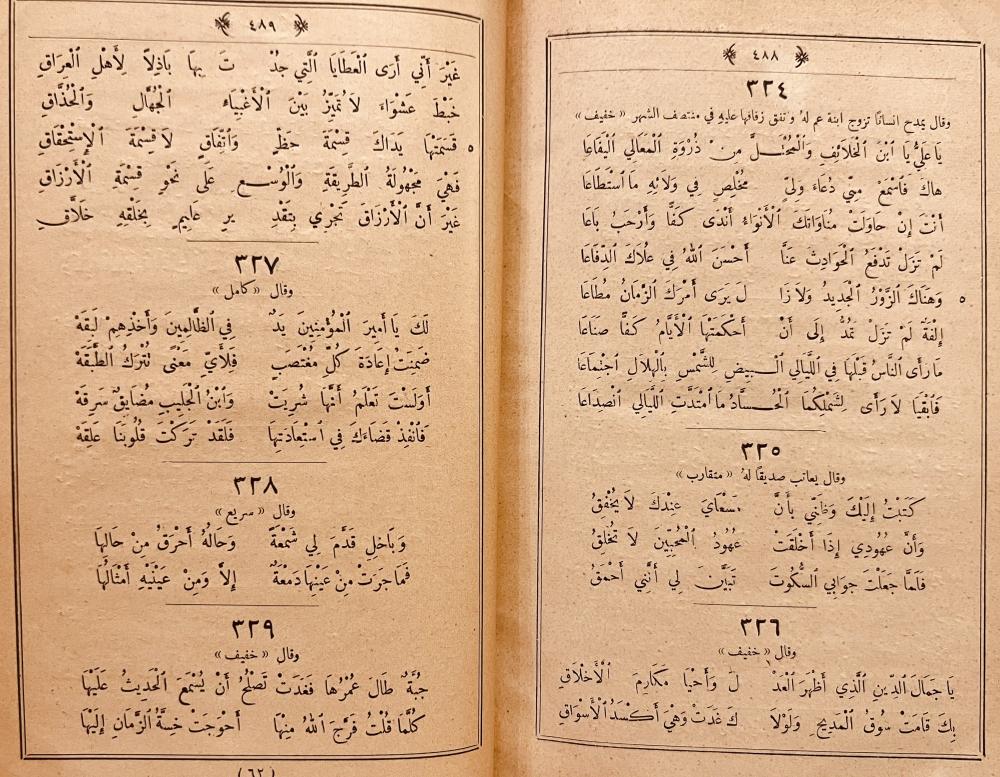 ٤٨٨
٣٢٤
وقال يمدح انسانًا تزوج ابنة عم له واتفق زفافها عليه في منتصف الشهر «خفيف»
يَا عَلِيُّ يَا ٱبْنَ ٱلْخَلَائِفِ وَٱلْمُحْتَلَّ مِنْ ذُرْوَةِ ٱلْمَعَالِي ٱلْيَفَاعَا
هَاكَ فَٱسْمَعْ مِنِّي دُعَاءَ وَلِيٍّ مُخْلِصٍ فِي وَلَائِهِ مَا ٱسْتَطَاعَا
أَنْتَ إِنْ حَاوَلَتْ مُنَاوَاتَكَ ٱلْأَنْوَاءُ أَنْدَى كَفًّا وَأَرْحَبُ بَاعَا
لَمْ تَزَلْ تَدْفَعُ ٱلْحَوَادِثَ عَنَّا أَحْسَنَ ٱللهُ فِي عُلَاكَ ٱلدِّفَاعَا
وَهَنَاكَ ٱلزَّوْرُ ٱلْجَدِيدُ وَلَا زَا لَ يَرَى أَمْرَكَ ٱلزَّمَانُ مُطَاعَا ٥
إِلْفَةٌ لَمْ تَزَلْ تَمُدُّ إِلَى أَنْ أَحْكَمَتْهَا ٱلْأَيَّامُ كَفًّا صَنَاعَا
مَا رَأَى ٱلنَّاسُ قَبْلَهَا فِي ٱللَّيَالِي ٱلْبِيضِ لِلشَّمْسِ بِٱلْهِلَالِ ٱجْتِمَاعَا
فَٱبْقَيَا لَا رَأَى لِشَمْلِكُمَا ٱلْحُسَّادُ مَا ٱمْتَدَّتِ ٱللَّيَالِي ٱنْصِدَاعَا
٣٢٥
وقال يعاتب صديقًا له «متقارب»
كَتَبْتُ إِلَيْكَ وَظَنِّي بِأَنَّ مَسْعَايَ عِنْدَكَ لَا يُخْفِقُ
وَأَنَّ عُهُودِي إِذَا أَخْلَقَتْ عُهُودُ ٱلْمُحِبِّينَ لَا تُخْلِقُ
فَلَمَّا جَعَلْتَ جَوَابِي ٱلسُّكُوتَ تَبَيَّنَ لِي أَنَّنِي أَحْمَقُ
٣٢٦
وقال «خفيف»
يَا جَمَالَ ٱلدِّينِ ٱلَّذِي أَظْهَرَ ٱلْعَدْ لَ وَأَحْيَا مَكَارِمَ ٱلْأَخْلَاقِ
بِكَ قَامَتْ سُوقُ ٱلْمَدِيحِ وَلَوْلَا كَ غَدَتْ وَهْيَ أَكْسَدُ ٱلْأَسْوَاقِ
٤٨٩
غَيْرَ أَنِّي أَرَى ٱلْعَطَايَا ٱلَّتِي جُدْ تَ بِهَا بَاذِلًا لِأَهْلِ ٱلْعِرَاقِ
خَبْطَ عَشْوَاءَ لَا تُمَيِّزُ بَيْنَ ٱلْأَغْبِيَاءِ ٱلْجُهَّالِ وَٱلْحُذَّاقِ
قَسَمَتْهَا يَدَاكَ قِسْمَةَ حَظٍّ وَٱتِّفَاقٍ لَا قِسْمَةَ ٱلْإِسْتِحْقَاقِ ٥
فَهْيَ مَجْهُولَةُ ٱلطَّرِيقَةِ وَٱلْوُسْعِ عَلَى نَحْوِ قِسْمَةِ ٱلْأَرْزَاقِ
غَيْرَ أَنَّ ٱلْأَرْزَاقَ تَجْرِي بِتَقْدِ يرِ عَلِيمٍ بِخَلْقِهِ خَلَّاقِ
٣٢٧
وقال «كامل»
لَكَ يَا أَمِيرَ ٱلْمُؤْمِنِينَ يَدٌ فِي ٱلظَّالِمِينَ وَأَخْذِهِمْ لَبِقَهْ
ضَمِنَتْ إِعَادَةَ كُلِّ مُغْتَصَبٍ فَلِأَيِّ مَعْنًى تُتْرَكُ ٱلطَّبَقَهْ
أَوَلَسْتَ تَعْلَمُ أَنَّهَا شُرِيَتْ وَٱبْنُ ٱلْجَلِيبِ مُضَايِقٌ سَرِقَهْ
فَٱنْفِذْ قَضَاءَكَ فِي ٱسْتِعَادَتِهَا فَلَقَدْ تَرَكَتْ قُلُوبَنَا عَلِقَهْ
٣٢٨
وقال «سريع»
وَبَاخِلٍ قَدَّمَ لِي شَمْعَةً وَحَالُهُ أَحْرَقُ مِنْ حَالِهَا
فَمَا جَرَتْ مِنْ عَيْنِهَا دَمْعَةٌ إِلَّا وَمِنْ عَيْنَيْهِ أَمْثَالُهَا
٣٢٩
وقال «خفيف»
جُبَّةٌ طَالَ عُمْرُهَا فَغَدَتْ تَصْلُحُ أَنْ يُسْمَعَ ٱلْحَدِيثُ عَلَيْهَا
كُلَّمَا قُلْتُ فَرَّجَ ٱللهُ مِنْهَا أَحْوَجَتْ خِسَّةُ ٱلزَّمَانِ إِلَيْهَا
(٦٢)